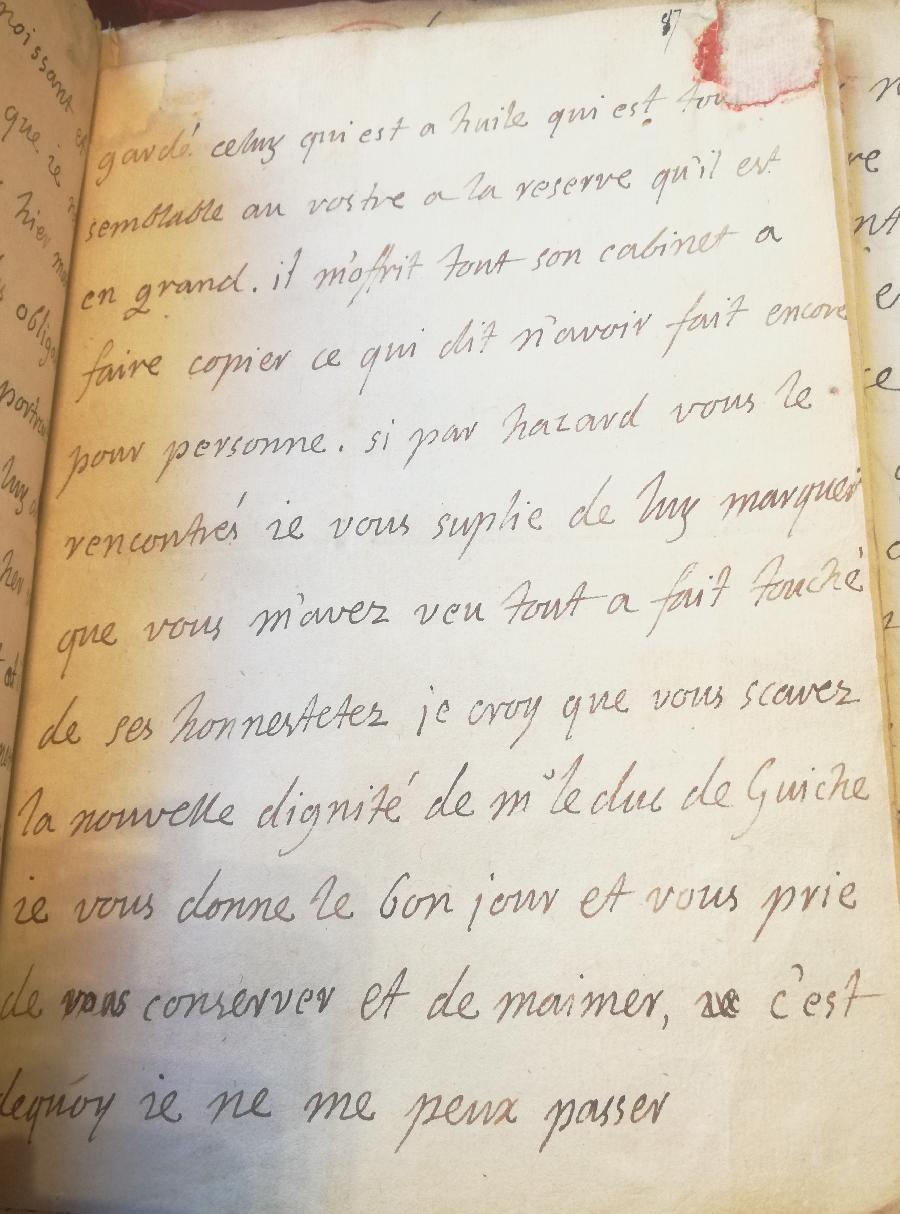 87
gardé celuy qui est a huile qui est tou
semblable au vostre a la reserve qu'il est
en grand. il m'offrit tout son cabinet a
faire copier ce qui dit n'avoir fait encore
pour personne. si par hazard vous le
rencontrés ie vous suplie de luy marquer
que vous m'avez veu tout a fait touché
de ses honnestetez je croy que vous scavez
la nouvelle dignité de mr le duc de Guiche
ie vous donne le bon jour et vous prie
de vous conserver et de maimer, c'est
dequoy ie ne me peux passer